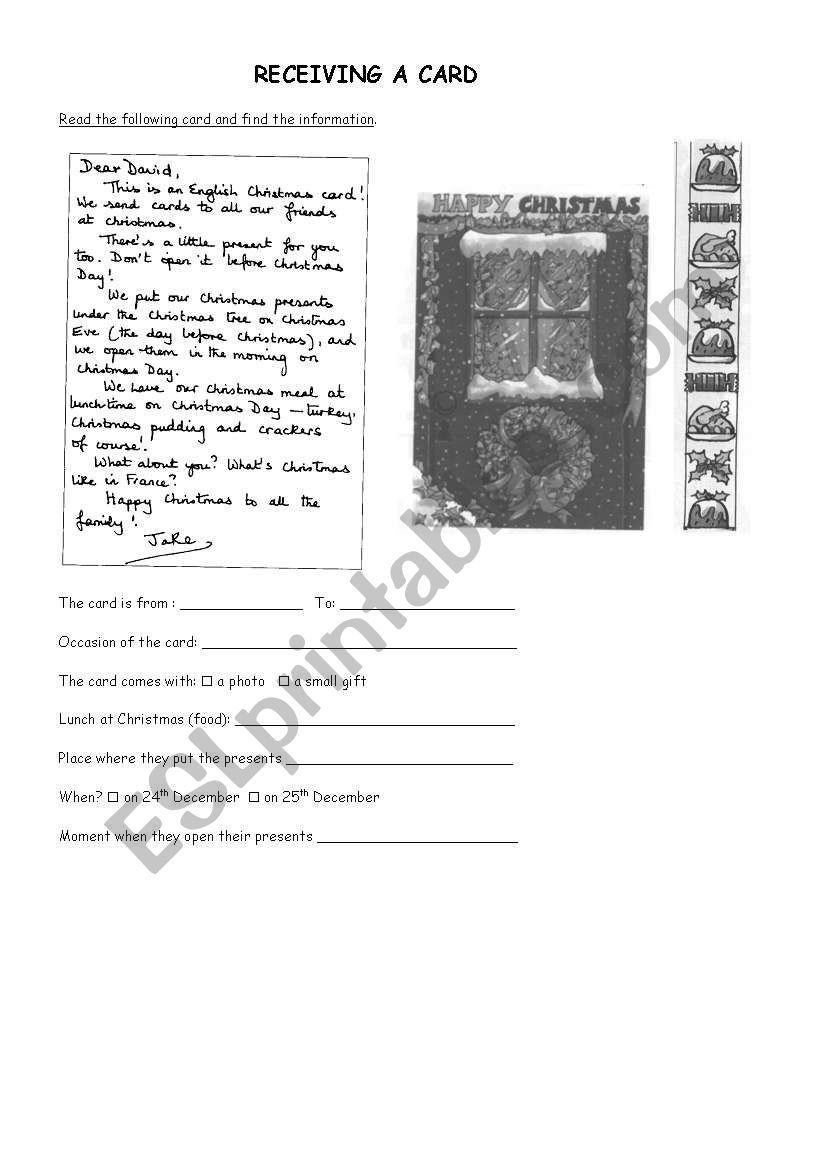 RECEIVING A CARD
Read the following card and find the information.
Dear David,
This is an English Christmas card!
We send cards to all our friends
at Christmas.
There's a little present for you
too. Don't open it before Christmas
Day!
We put our Christmas presents
under the Christmas tree on Christmas
Eve (the day before Christmas), and
we open them in the morning on
Christmas Day.
We have our Christmas meal at
lunch-time on Christmas Day – turkey,
Christmas pudding and crackers
of course!
What about you? What's Christmas
like in France?
Happy Christmas to all the
family!
Jake
HAPPY CHRISTMAS
The card is from : ______________ To: ____________________
Occasion of the card: ____________________________________
The card comes with: □ a photo □ a small gift
Lunch at Christmas (food): ________________________________
Place where they put the presents __________________________
When? □ on 24th December □ on 25th December
Moment when they open their presents _______________________
ESLprintables.com